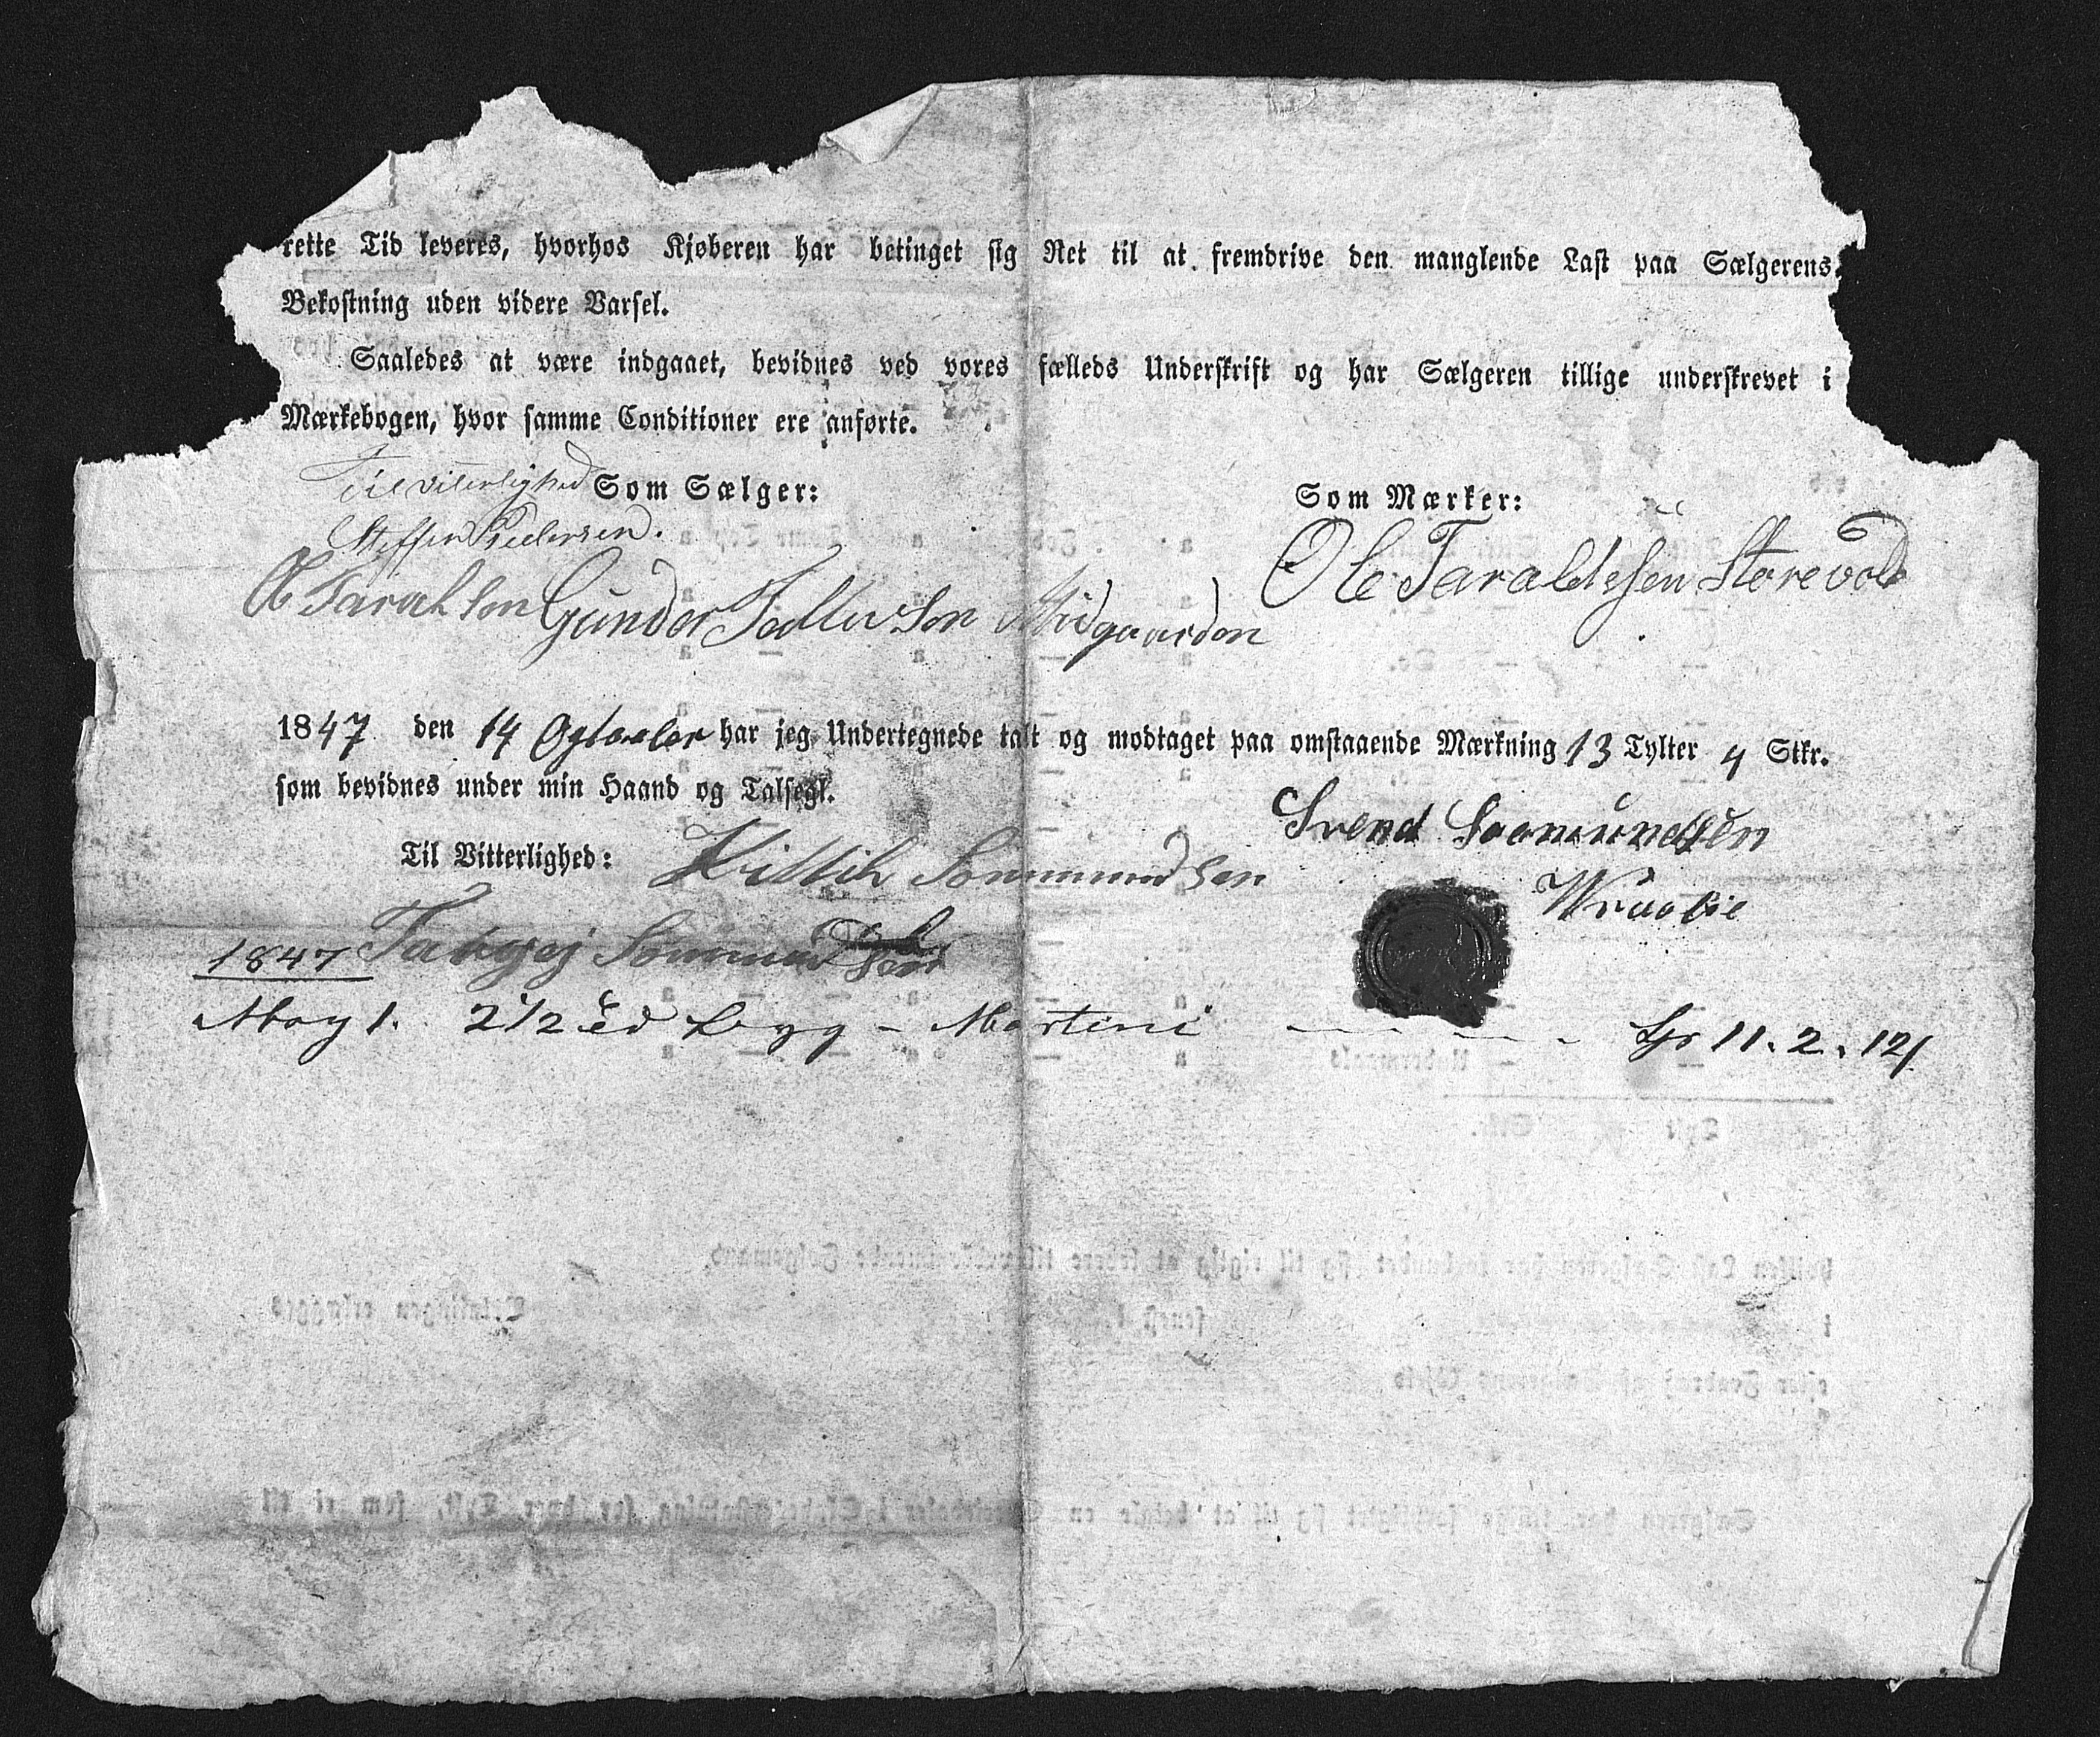 rette Tid leveres, hvorhos Kjøberen har betinget sig Ret til at fremdrive den manglende Last paa Sælgerens
Bekostning uden videre Varsel.
Saaledes at være indgaaet, bevidnes ved vores fælleds Underskrift og har Sælgeren tillige underskrevet i
Mærkebogen, hvor samme Conditioner ere anførte.
Til vitterlighed Som Sælger:
Som Mærker:
Steffen Pedersen.
Ole Taraldsen Storevold
Gunder Midgaarden
1847 den 14 har jeg Undertegnede talt og modtaget paa omstaaende Mærkning 13 Tylter 4 Stkr.
som bevidnes under min Haand og Talsegl.
Svend
Til Vitterlighed:
1847
May 1. 2 1/2 - Martini
11. 2. 12